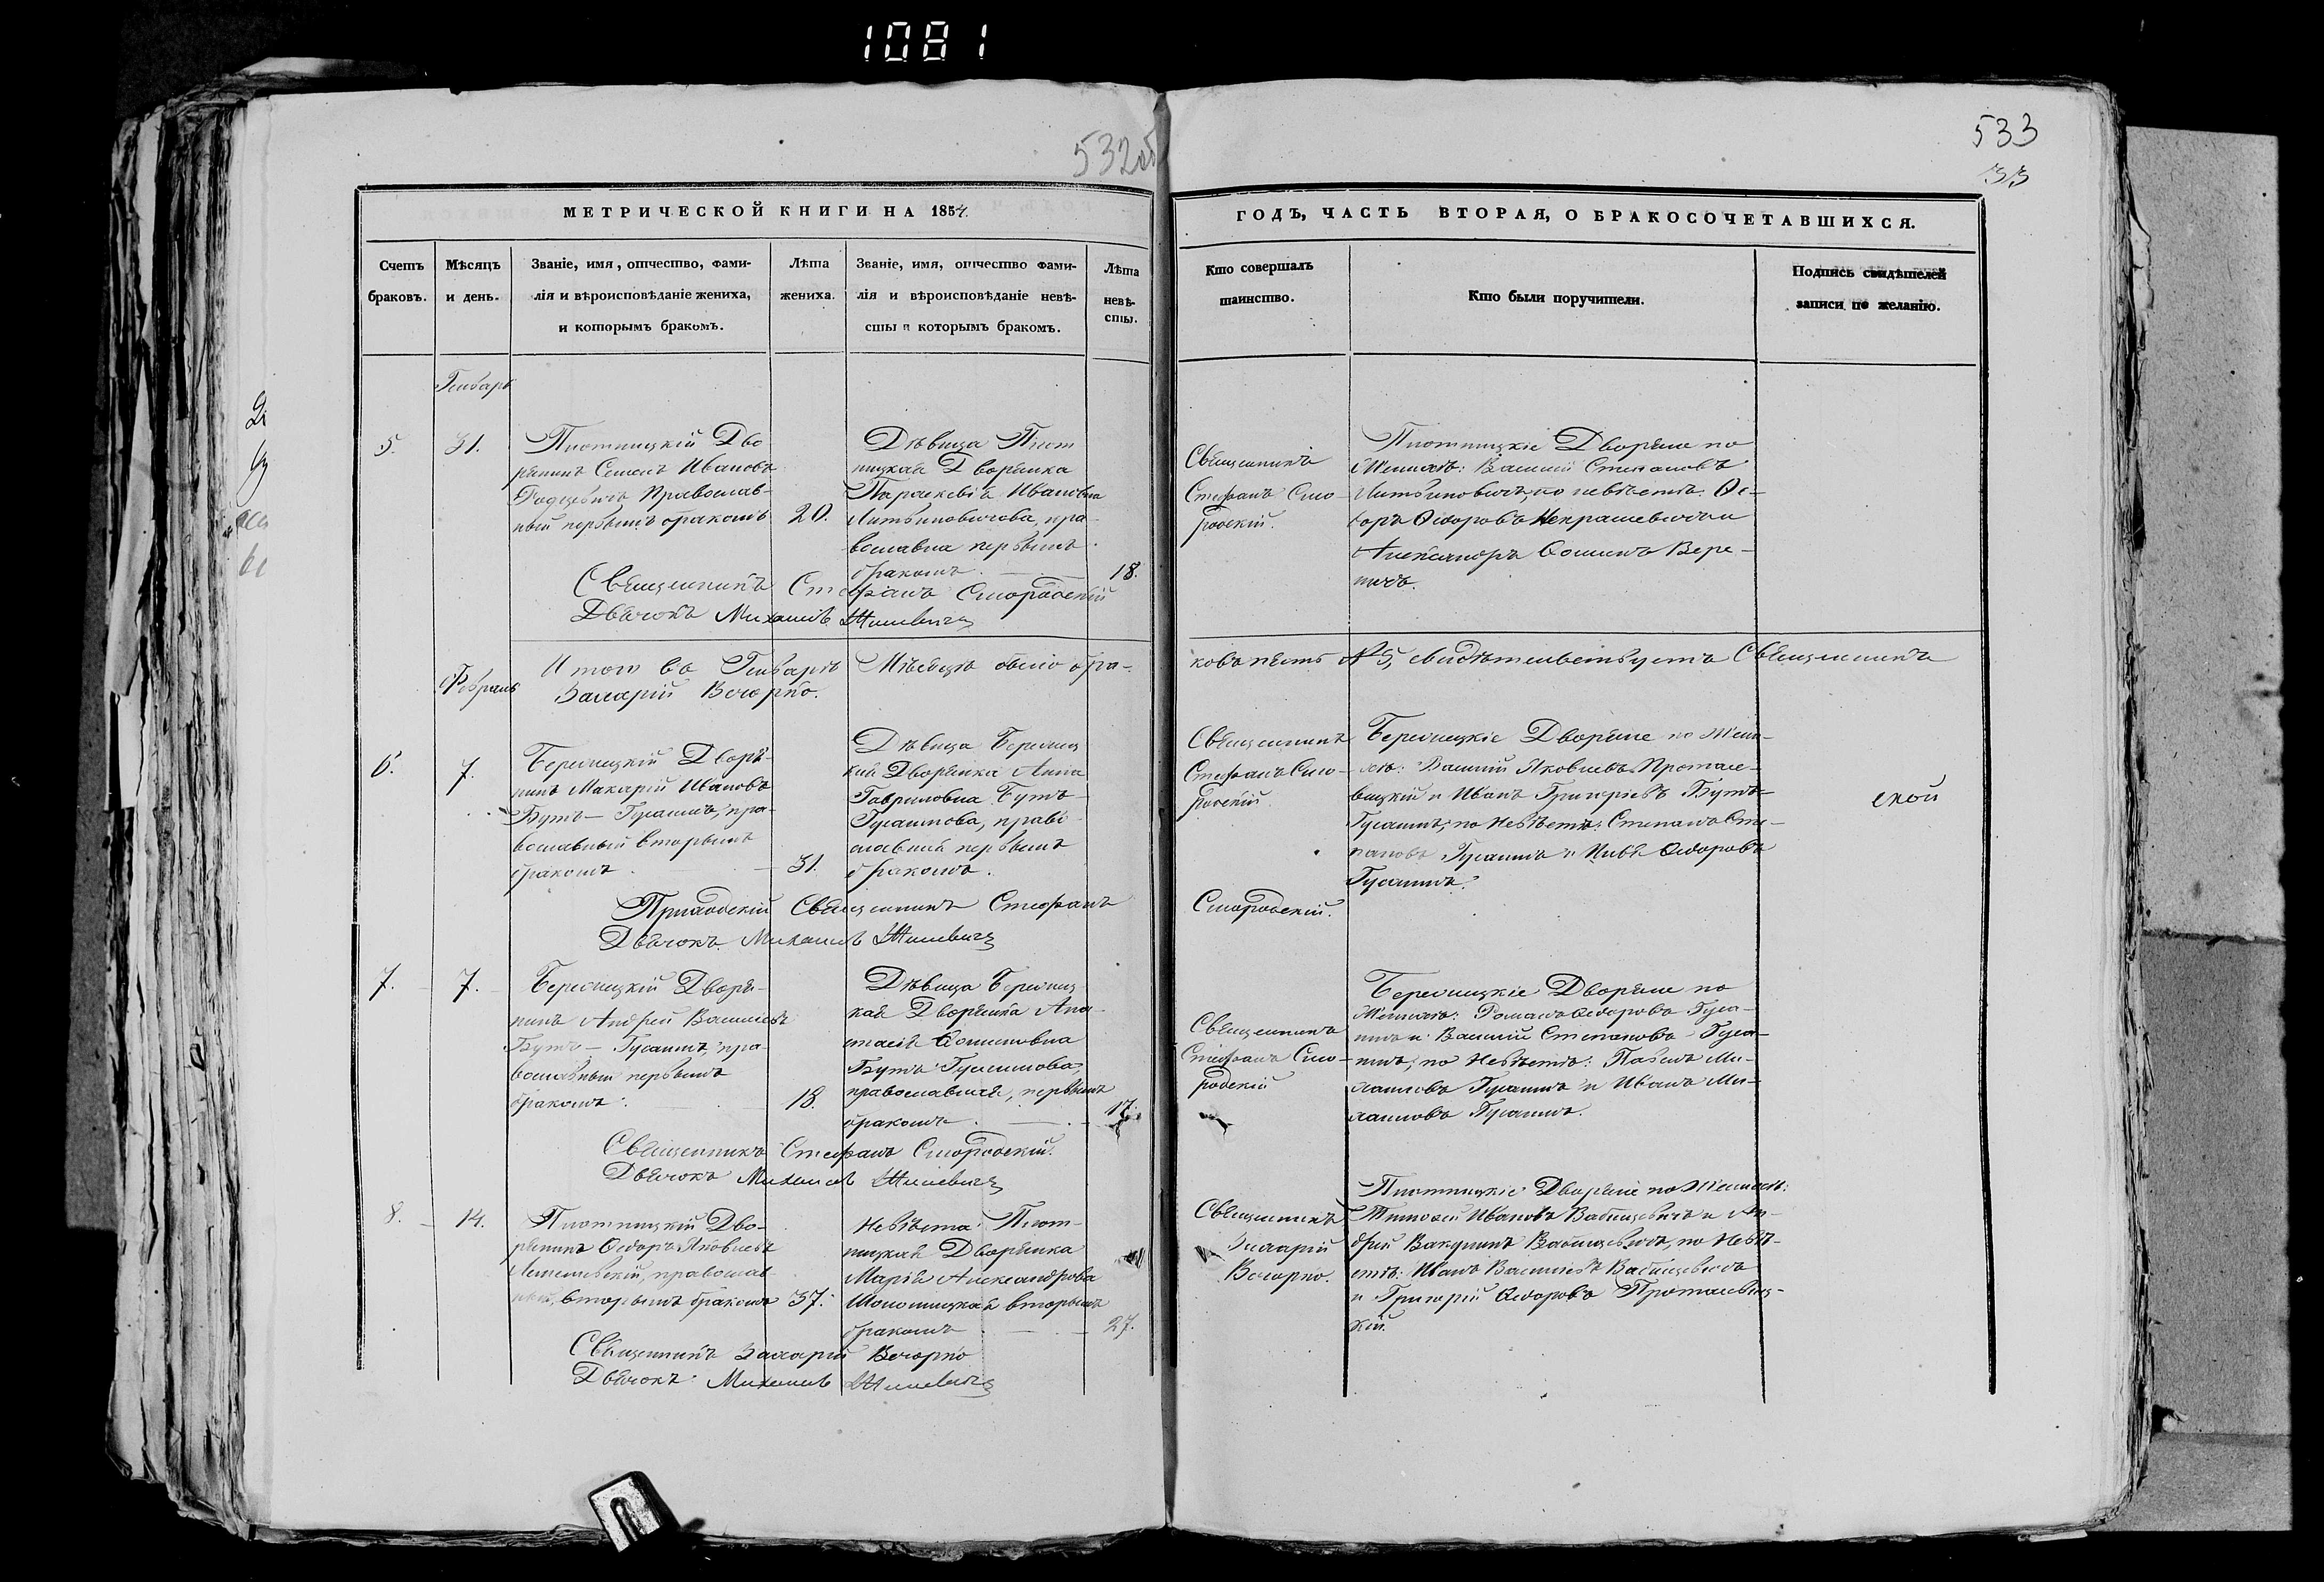 1081
532об
533
33
МЕТРИЧЕСКОЙ КНИГИ НА 1854.
ГОДЪ, ЧАСТЬ ВТОРАЯ, О БРАКОСОЧЕТАВШИХСЯ.
Счетъ
браковъ.
Мѣсяцъ
и день.
Званіе, имя, отчество, фами-
лія и вѣроисповѣданіе жениха,
и которымъ бракомъ.
Лѣта
жениха.
Званіе, имя, отчество фами-
лія и вѣроисповѣданіе невѣ-
сты и которымъ бракомъ.
Лѣта
невѣ-
сты.
Кто совершалъ
таинство.
Кто были поручители.
Подпись свидѣтелей
записи по желанію.
Генварь
5.
31.
Плотницкій Дво
рянинъ Семенъ Ивановъ
Православ-
ный первымъ бракомъ
20.
Дѣвица Плот
ницкая Дворянка
Параскевія Ивановна
Литвиновичова, пра-
вославна первымъ
бракомъ.
18.
Священникъ
Стефанъ Смо-
родскій.
Плотницкіе Дворяне по
Женихѣ: Василій Степановъ
Литвиновичъ, по невѣстѣ: Ѳе-
доръ Ѳедоровъ Некрашевичъ и
Александръ Ѳоминъ Вере-
ничъ.
Священникъ Стефанъ Смородскій
Дьячокъ Михаилъ Жилевичъ
Итого въ Генварѣ Мѣсяцѣ было бра-
ковъ пять № 5, свидѣтельствуетъ Священникъ
Захарій Вечорко.
Февраль
6.
7.
Бережецкій Дворя-
нинъ Макарій Ивановъ
Бутъ-Гусаимъ, пра-
вославный вторымъ
бракомъ.
31.
Дѣвица
кая Дворянка Анна
Гавриловна Бутъ
Гусаимова, право
славная первымъ
бракомъ.
Священникъ
Стефанъ Смо-
родскій.
Дворяне по Жени-
хѣ: Василій Яковлевъ Протасе-
вицкій и Иванъ Григорьевъ Бутъ-
Гусаимъ, по Невѣстѣ: Степанъ Сте-
пановъ Гусаимъ и Ѳедоровъ
Гусаимъ.
ской
Приходскій Священникъ Стефанъ
Смородскій.
Дьячокъ Михаилъ Жилевичъ
7.
7.
Дворя-
нинъ Андрей Васильевъ
Бутъ-Гусаимъ, пра-
вославный первымъ
бракомъ.
18.
Дѣвица
кая Дворянка Ана-
стасія Ѳоминовна
Бутъ Гусаимова,
православная, первымъ
бракомъ.
17.
Священникъ
Стефанъ Смо-
родскій
Дворяне по
Женихѣ: Романъ Ѳедоровъ Гуса-
имъ и Василій Степановъ Гуса-
имъ, по Невѣстѣ: Павелъ Ми-
хаиловъ Гусаимъ и Иванъ Ми-
хаиловъ Гусаимъ.
Священникъ Стефанъ Смородскій.
Дьячокъ Михаилъ Жилевичъ
8.
14.
Плотницкій Дво-
рянинъ Ѳедоръ Яковлевъ
православ-
ный, вторымъ бракомъ
37.
Невѣста Плот-
ницкая Дворянка
Марія Александрова
вторымъ
бракомъ
27.
Священникъ
Захарій
Вечорко.
Плотницкіе Дворяне по Женихѣ:
Тимофей Ивановъ Вабищевичъ и Ан-
дрей Вабищевичъ, по Невѣ-
стѣ: Иванъ Васильевъ Вабищевичъ
и Григорій Ѳедоровъ Протасевиц-
кій.
Священникъ Захарій Вечорко
Дьячокъ Михаилъ Жилевичъ